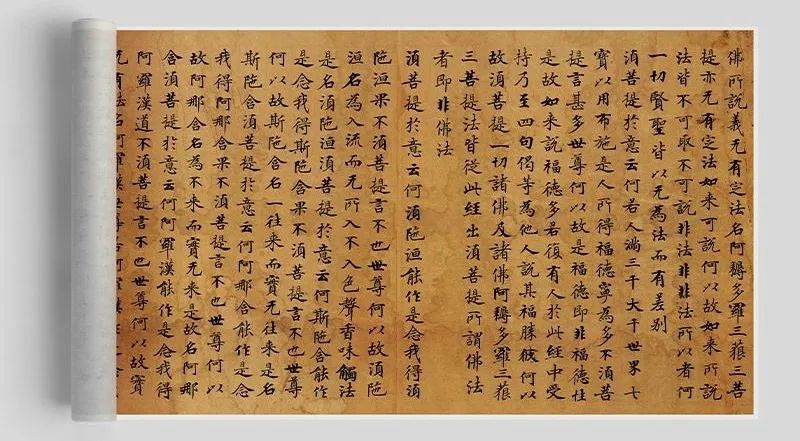 佛所說義无有定法名阿耨多羅三藐三菩
提亦无有定法如来可說何以故如来所說
法皆不可取不可說非法非非法所以者何
一切賢聖皆以无為法而有差别
湏菩提於意云何若人滿三千大千世界七
寶以用布施是人所得福德寧為多不湏菩
提言甚多世尊何以故是福德即非福德性
是故如来說福德多若復有人於此經中受
持乃至四句偈等為他人說其福勝彼何以
故湏菩提一切諸佛及諸佛阿耨多羅三藐
三菩提法皆從此經出湏菩提所謂佛法
者即非佛法
湏菩提於意云何湏陁洹能作是念我得湏
陁洹果不湏菩提言不也世尊何以故湏陁
洹名為入流而无所入不入色聲香味觸法
是名湏陁洹湏菩提於意云何斯陁含能作
是念我得斯陁含果不湏菩提言不也世尊
何以故斯陁含名一往来而實无往来是名
斯陁含湏菩提於意云何阿那含能作是念
我得阿那含果不湏菩提言不也世尊何以
故阿那含名為不来而實无来是故名阿那
含湏菩提於意云何阿羅漢能作是念我得
阿羅漢道不湏菩提言不也世尊何以故實
无有法名阿羅漢世尊